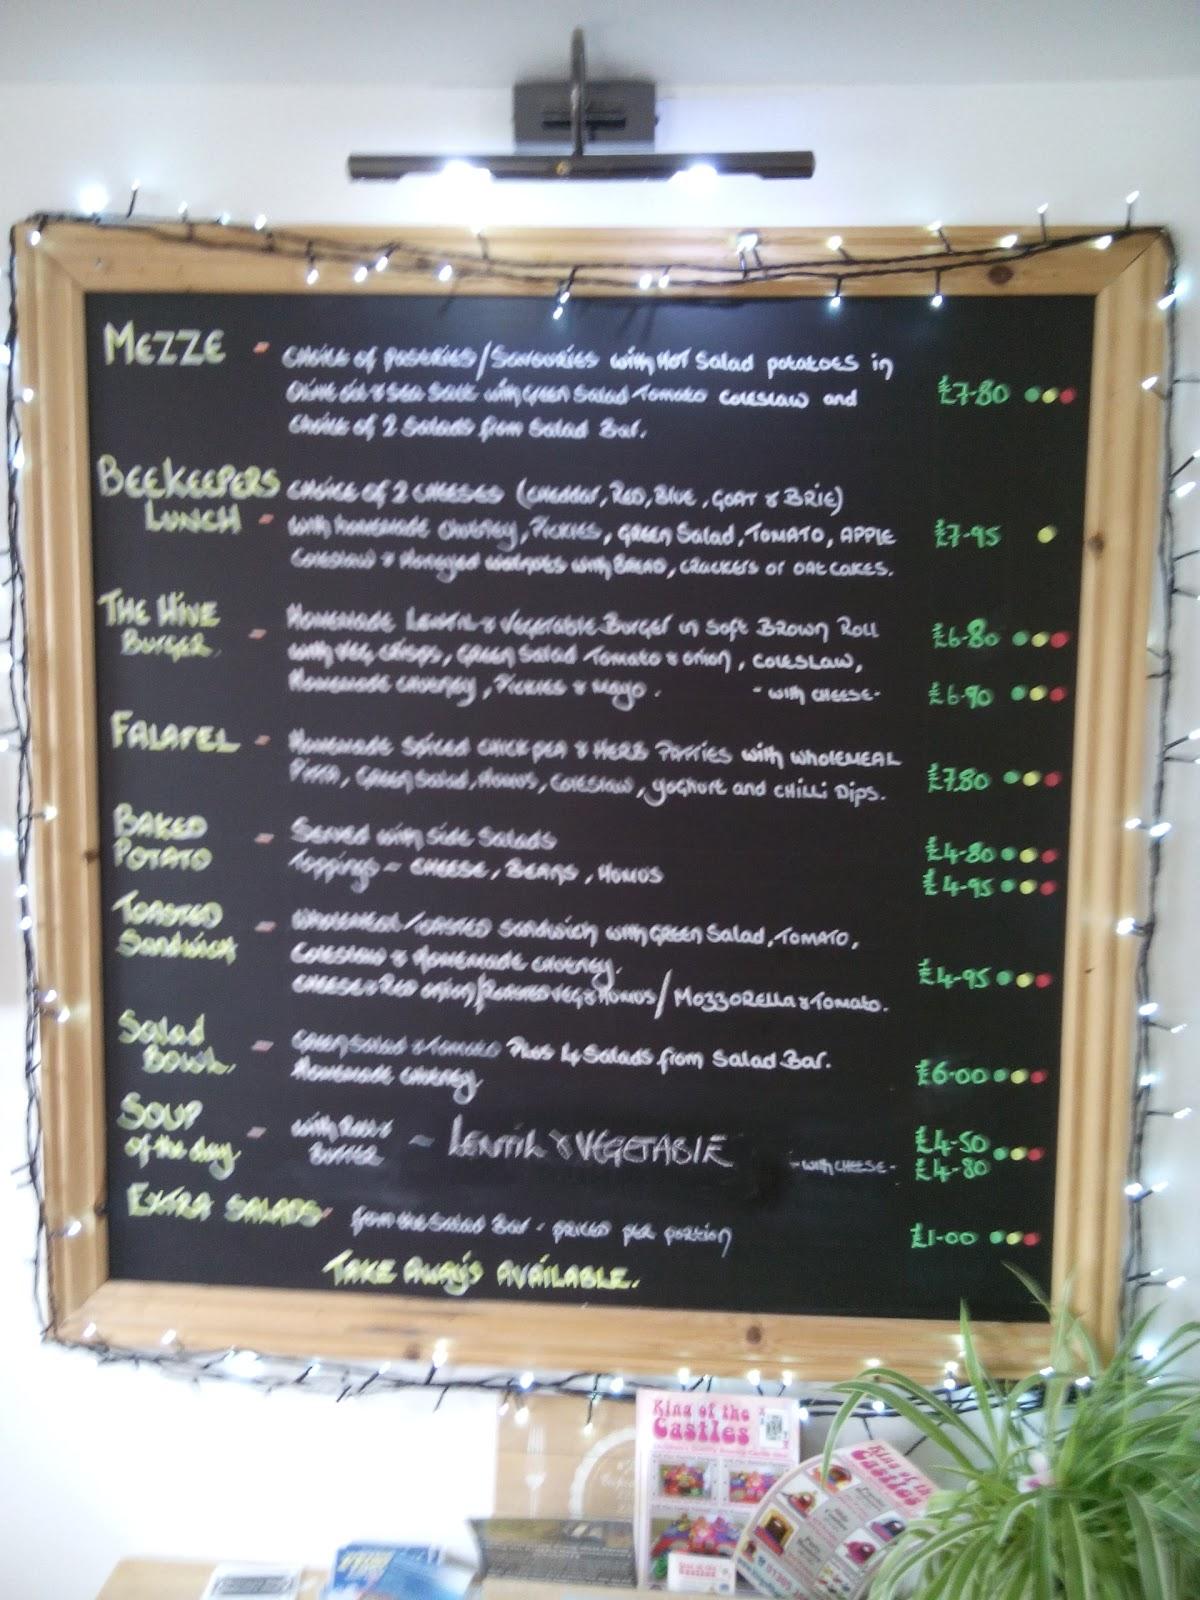 MEZZE - CHOICE of PASTERIES/SAVOURIES with HOT Salad potatoes in
Olive oil & Sea Salt with Green Salad Tomato Coleslaw and £7-80
Choice of 2 Salads from Salad Bar.
BEEKEEPERS LUNCH - CHOICE OF 2 CHEESES (CHEDDAR, RED, BLUE, GOAT & BRIE)
with homemade chutney, Pickles, GREEN Salad, TOMATO, APPLE £7-95
Coleslaw & Honeyed walnuts with BREAD, CRACKERS or OATCAKES.
THE HIVE BURGER - HOMEMADE LENTIL & VEGETABLE BURGER in SOFT BROWN ROLL £6-80
with veg crisps, GREEN Salad Tomato & onion, COLESLAW,
Homemade chutney, Pickles & mayo. - with CHEESE - £6-90
FALAFEL - Homemade SPICED CHICK PEA & HERB PATTIES with WHOLEMEAL
Pitta, Green Salad, Homus, Coleslaw, yoghurt and CHILLI Dips. £7.80
BAKED POTATO - Served with side Salads £4-80
Toppings - CHEESE, BEANS, HUMUS £4-95
TOASTED Sandwich - WHOLEMEAL TOASTED Sandwich with GREEN Salad, TOMATO,
Coleslaw & HOMEMADE chutney.
CHEESE & RED onion/ROASTED VEG & HUMUS/MOZZORELLA & Tomato. £4-95
Salad BOWL. - Green Salad & Tomato Plus 4 Salads from Salad Bar.
Homemade chutney £6-00
SOUP of the day - with Roll & BUTTER - LENTIL & VEGETABLE £4-50
- with CHEESE - £4-80
EXTRA SALADS - from the Salad Bar - priced per portion £1-00
TAKE AWAY'S AVAILABLE.
King of the
Castles
King of the
Castles